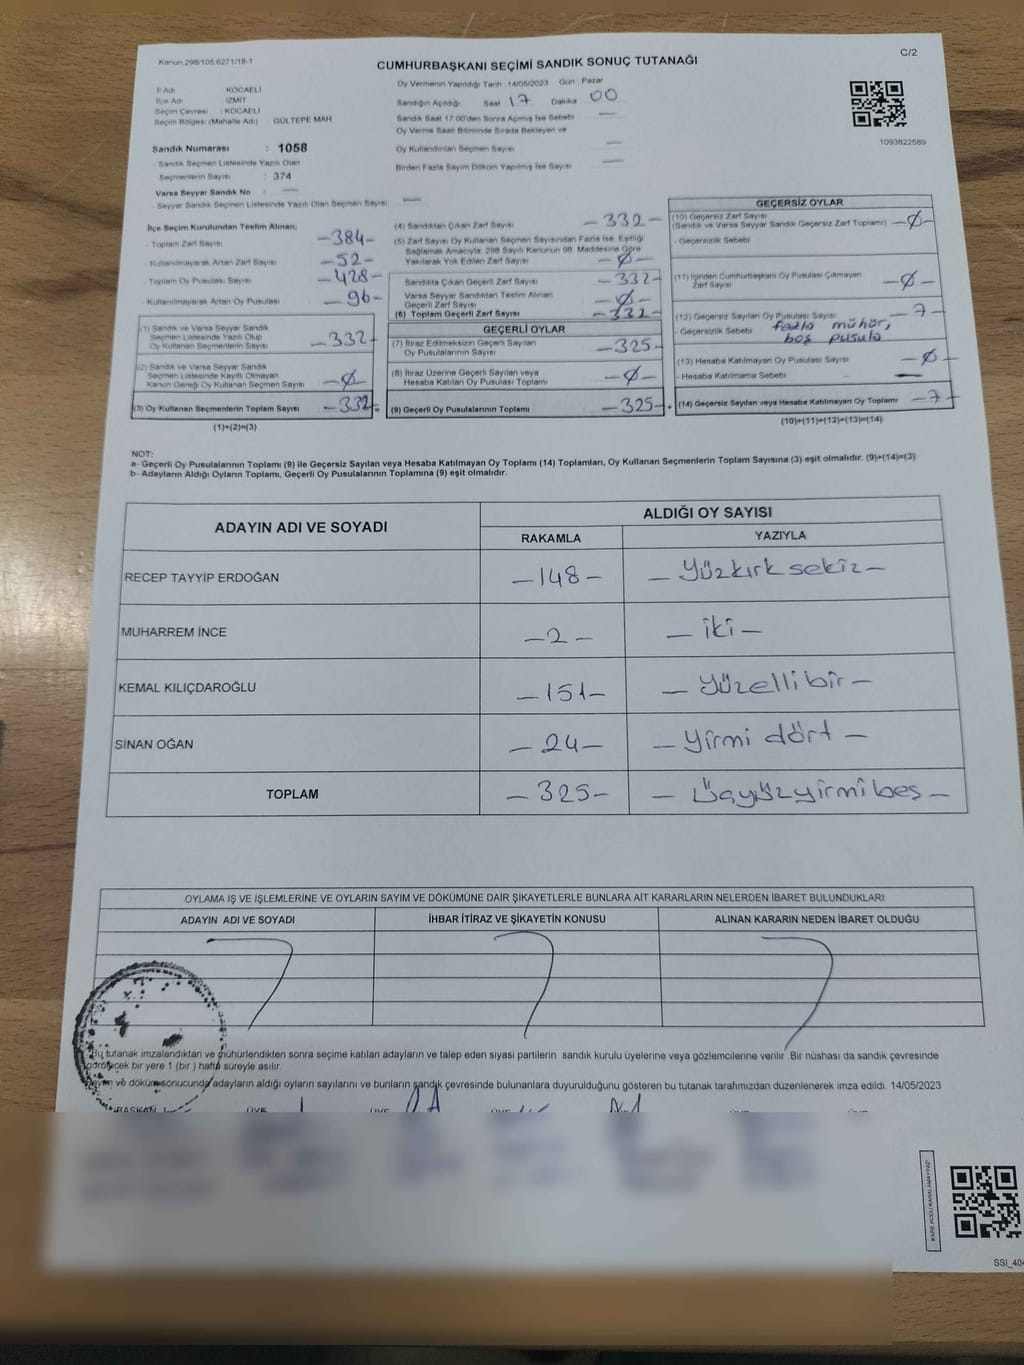 Kanun:298/105,6271/18-1
C/2
CUMHURBAŞKANI SEÇİMİ SANDIK SONUÇ TUTANAĞI
İl Adı : KOCAELİ
İlçe Adı : İZMİT
Seçim Çevresi : KOCAELİ
Seçim Bölgesi (Mahalle Adı) : GÜLTEPE MAH
Oy Vermenin Yapıldığı Tarih 14/05/2023 Gün : Pazar
Sandığın Açıldığı Saat 17 Dakika 00
Sandık Saat 17:00'den Sonra Açılmış İse Sebebi —
Oy Verme Saati Bitiminde Sırada Bekleyen ve
Oy Kullandırılan Seçmen Sayısı —
Birden Fazla Sayım Döküm Yapılmış İse Sayısı —
1093822589
Sandık Numarası : 1058
- Sandık Seçmen Listesinde Yazılı Olan
Seçmenlerin Sayısı : 374
Varsa Seyyar Sandık No : —
- Seyyar Sandık Seçmen Listesinde Yazılı Olan Seçmen Sayısı : —
İlçe Seçim Kurulundan Teslim Alınan;
- Toplam Zarf Sayısı -384-
- Kullanılmayarak Artan Zarf Sayısı -52-
- Toplam Oy Pusulası -428-
- Kullanılmayarak Artan Oy Pusulası -96-
(1) Sandık ve Varsa Seyyar Sandık
Seçmen Listesinde Yazılı Olup
Oy Kullanan Seçmenlerin Sayısı -332-
(2) Sandık ve Varsa Seyyar Sandık
Seçmen Listesinde Kayıtlı Olmayan
Kanun Gereği Oy Kullanan Seçmen Sayısı -Ø-
(3) Oy Kullanan Seçmenlerin Toplam Sayısı -332-
(1)+(2)=(3)
(4) Sandıktan Çıkan Zarf Sayısı -332-
(5) Zarf Sayısı Oy Kullanan Seçmen Sayısından Fazla İse, Eşitliği
Sağlamak Amacıyla; 298 Sayılı Kanunun 98. Maddesine Göre
Yakılarak Yok Edilen Zarf Sayısı -Ø-
Sandıkta Çıkan Geçerli Zarf Sayısı -332-
Varsa Seyyar Sandıktan Teslim Alınan
Geçerli Zarf Sayısı -Ø-
(6) Toplam Geçerli Zarf Sayısı -332-
GEÇERLİ OYLAR
(7) İtiraz Edilmeksizin Geçerli Sayılan
Oy Pusulalarının Sayısı -325-
(8) İtiraz Üzerine Geçerli Sayılan veya
Hesaba Katılan Oy Pusulası Toplamı -Ø-
(9) Geçerli Oy Pusulalarının Toplamı -325-
GEÇERSİZ OYLAR
(10) Geçersiz Zarf Sayısı
(Sandık ve Varsa Seyyar Sandık Geçersiz Zarf Toplamı) -Ø-
- Geçersizlik Sebebi
(11) İçinden Cumhurbaşkanı Oy Pusulası Çıkmayan
Zarf Sayısı -Ø-
(12) Geçersiz Sayılan Oy Pusulası Sayısı -7-
- Geçersizlik Sebebi fazla mühür,
boş pusula
(13) Hesaba Katılmayan Oy Pusulası Sayısı -Ø-
- Hesaba Katılmama Sebebi —
(14) Geçersiz Sayılan veya Hesaba Katılmayan Oy Toplamı -7-
(10)+(11)+(12)+(13)=(14)
NOT:
a- Geçerli Oy Pusulalarının Toplamı (9) ile Geçersiz Sayılan veya Hesaba Katılmayan Oy Toplamı (14) Toplamları, Oy Kullanan Seçmenlerin Toplam Sayısına (3) eşit olmalıdır. (9)+(14)=(3)
b- Adayların Aldığı Oyların Toplamı, Geçerli Oy Pusulalarının Toplamına (9) eşit olmalıdır.
ADAYIN ADI VE SOYADI ALDIĞI OY SAYISI
RAKAMLA YAZIYLA
RECEP TAYYİP ERDOĞAN -148- - Yüzkırk sekiz -
MUHARREM İNCE -2- - iki -
KEMAL KILIÇDAROĞLU -151- - Yüzelli bir -
SİNAN OĞAN -24- - Yirmi dört -
TOPLAM -325- - Üçyüzyirmi beş -
OYLAMA İŞ VE İŞLEMLERİNE VE OYLARIN SAYIM VE DÖKÜMÜNE DAİR ŞİKAYETLERLE BUNLARA AİT KARARLARIN NELERDEN İBARET BULUNDUKLARI
ADAYIN ADI VE SOYADI İHBAR İTİRAZ VE ŞİKAYETİN KONUSU ALINAN KARARIN NEDEN İBARET OLDUĞU
Bu tutanak imzalandıktan ve mühürlendikten sonra seçime katılan adayların ve talep eden siyasi partilerin sandık kurulu üyelerine veya gözlemcilerine verilir. Bir nüshası da sandık çevresinde
görülecek bir yere 1 (bir) hafta süreyle asılır.
Sayım ve döküm sonucunda adayların aldığı oyların sayılarını ve bunların sandık çevresinde bulunanlara duyurulduğunu gösteren bu tutanak tarafımızdan düzenlenerek imza edildi. 14/05/2023
BAŞKAN ÜYE ÜYE ÜYE ÜYE ÜYE
KARE KODU KARALAMAYINIZ!
SSI_404